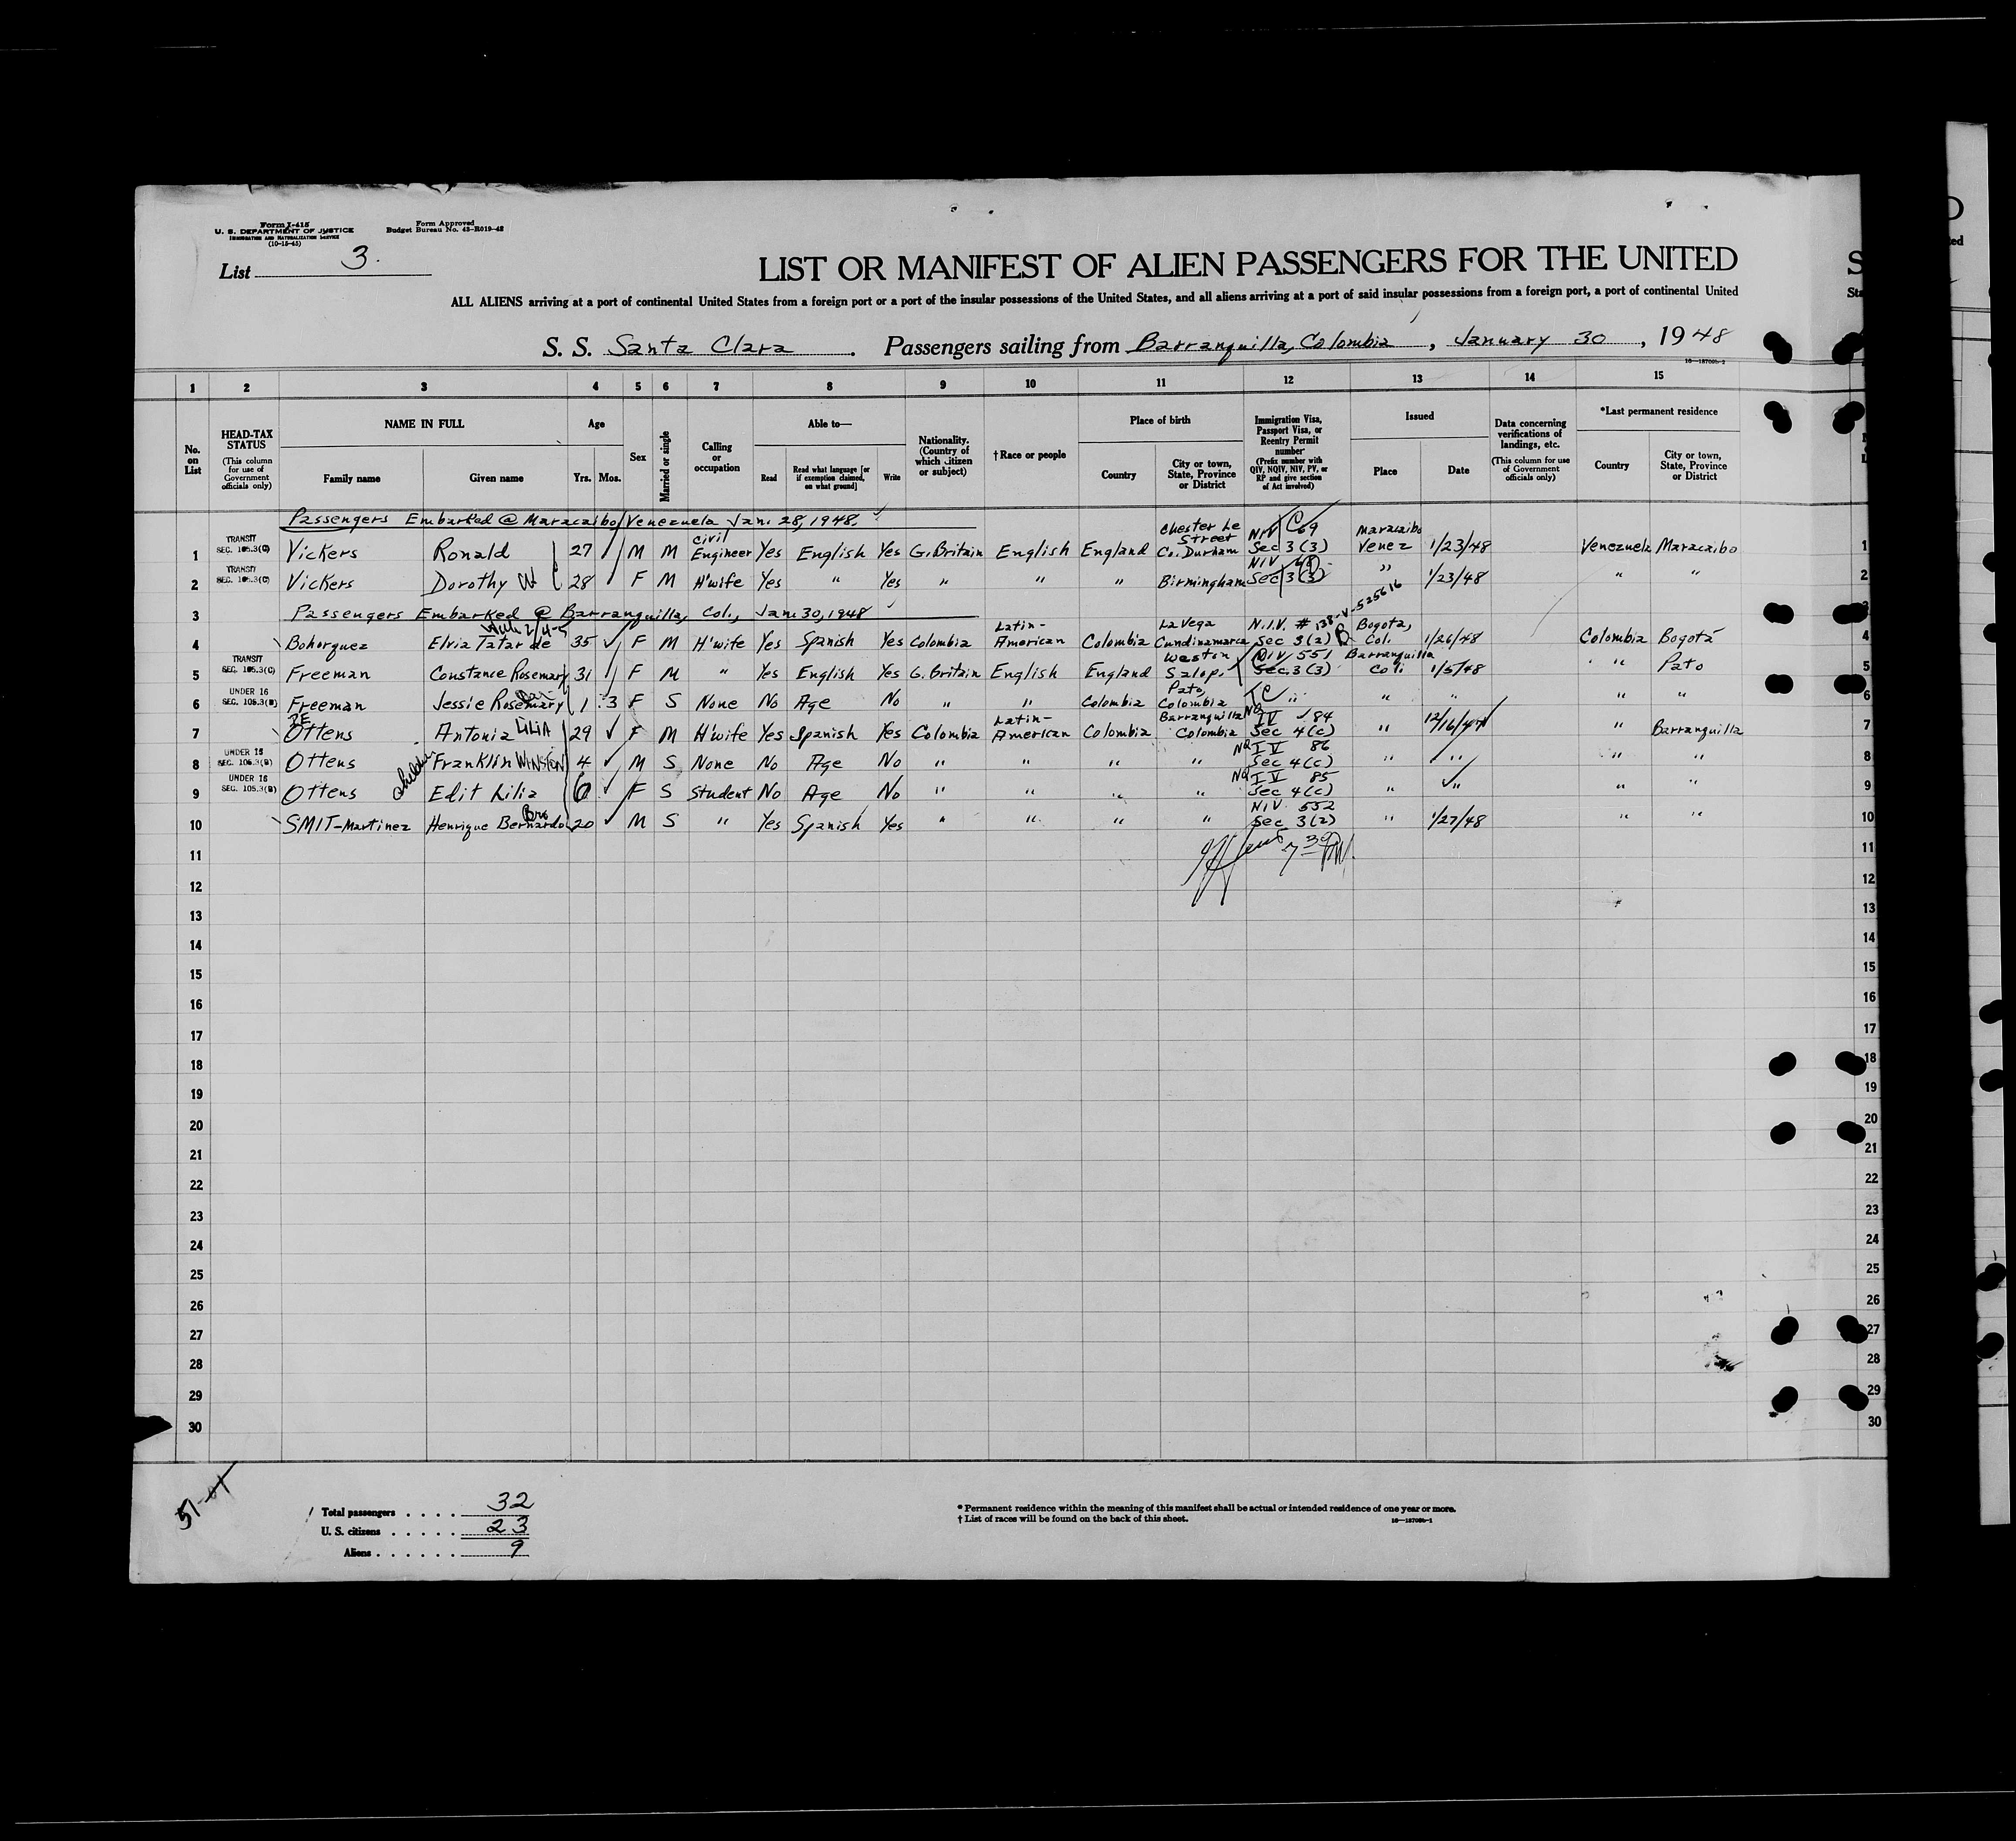 Form I-415
U. S. DEPARTMENT OF JUSTICE
IMMIGRATION AND NATURALIZATION SERVICE
(10-15-45)
Form Approved
Budget Bureau No. 43-R019-42
List 3.
LIST OR MANIFEST OF ALIEN PASSENGERS FOR THE UNITED
ALL ALIENS arriving at a port of continental United States from a foreign port or a port of the insular possessions of the United States, and all aliens arriving at a port of said insular possessions from a foreign port, a port of continental United
S. S. Santa Clara. Passengers sailing from Barranquilla, Colombia, January 30, 1948
1 2 3 4 5 6 7 8 9 10 11 12 13 14 15
No. on List
HEAD-TAX STATUS (This column for use of Government officials only)
NAME IN FULL
Family name
Given name
Age
Yrs. Mos.
Sex
Married or single
Calling or occupation
Able to—
Read
Read what language [or if exemption claimed, on what ground]
Write
Nationality. (Country of which citizen or subject)
†Race or people
Place of birth
Country
City or town, State, Province or District
Immigration Visa, Passport Visa, or Reentry Permit number
(Prefix number with QIV, NQIV, NIV, PV, or RP and give section of Act involved)
Issued
Place
Date
Data concerning verifications of landings, etc.
(This column for use of Government officials only)
*Last permanent residence
Country
City or town, State, Province or District
Passengers Embarked @ Maracaibo, Venezuela Jan. 28, 1948.
1 TRANSIT SEC. 105.3(C) Vickers Ronald 27 M M Civil Engineer Yes English Yes G. Britain English England Chester Le Street Co. Durham NIV 69 Sec 3 (3) Maracaibo Venez 1/23/48 Venezuela Maracaibo 1
2 TRANSIT SEC. 105.3(C) Vickers Dorothy W 28 F M H'wife Yes " Yes " " " Birmingham NIV 68 Sec 3 (3) " 1/23/48 " " 2
3 Passengers Embarked @ Barranquilla, Col., Jan. 30, 1948
4 Bohorquez Elvia Tatar de 35 F M H'wife Yes Spanish Yes Colombia Latin-American Colombia La Vega Cundinamarca N.I.V. # 138-V-525616 Sec 3(2) Bogota, Col. 1/26/48 Colombia Bogotá 4
5 TRANSIT SEC. 105.3(C) Freeman Constance Rosemary 31 F M " Yes English Yes G. Britain English England Weston Salop. NIV 551 Sec. 3(3) Barranquilla Col. 1/5/48 " Pato 5
6 UNDER 16 SEC. 105.3(B) Freeman Jessie Rosemary 1 3 F S None No Age No " " Colombia Pato, Colombia " " " " " 6
7 DE Ottens Antonia LILIA 29 F M H'wife Yes Spanish Yes Colombia Latin-American Colombia Barranquilla Colombia NQIV 84 Sec 4(c) " 12/16/47 " Barranquilla 7
8 UNDER 16 SEC. 105.3(B) Ottens children Franklin WINSTON 4 M S None No Age No " " " " NQIV 86 Sec 4(c) " " " " 8
9 UNDER 16 SEC. 105.3(B) Ottens Edit Lilia 6 F S Student No Age No " " " " NQIV 85 Sec 4(c) " " " " 9
10 SMIT-Martinez Henrique Bernardo Bro 20 M S " Yes Spanish Yes " " " " NIV 552 Sec 3(2) " 1/27/48 " " 10
11
12 12
13 13
14 14
15 15
16 16
17 17
18 18
19 19
20 20
21 21
22 22
23 23
24 24
25 25
26 26
27 27
28 28
29 29
30 30
Total passengers . . . . 32
U. S. citizens . . . . . 23
Aliens . . . . . . 9
* Permanent residence within the meaning of this manifest shall be actual or intended residence of one year or more.
† List of races will be found on the back of this sheet.